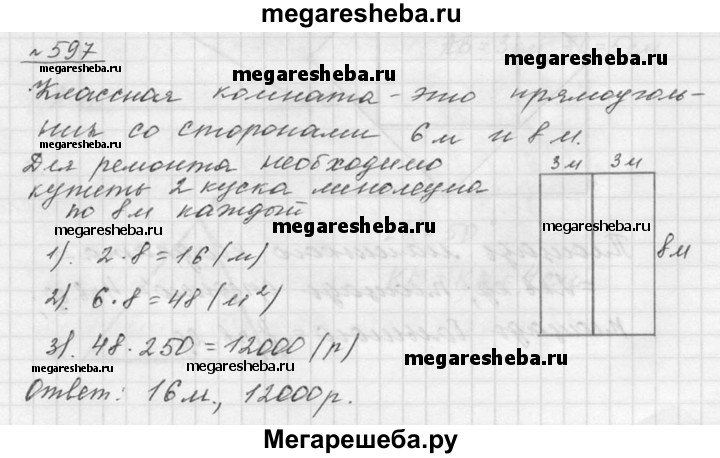 megaresheba.ru
№ 597
megaresheba.ru megaresheba.ru
Классная комната - это прямоуголь-
ник со сторонами 6 м и 8 м.
Для ремонта необходимо
купить 2 куска линолеума
по 8 м каждый
3 м 3 м
megaresheba.ru megaresheba.ru megaresheba.ru
8 м
1). 2·8=16 (м)
2). 6·8=48 (м²)
megaresheba.ru
3). 48·250=12000 (р)
megaresheba.ru megaresheba.ru megaresheba.ru
Ответ: 16 м., 12000 р.
Мегарешеба.ру